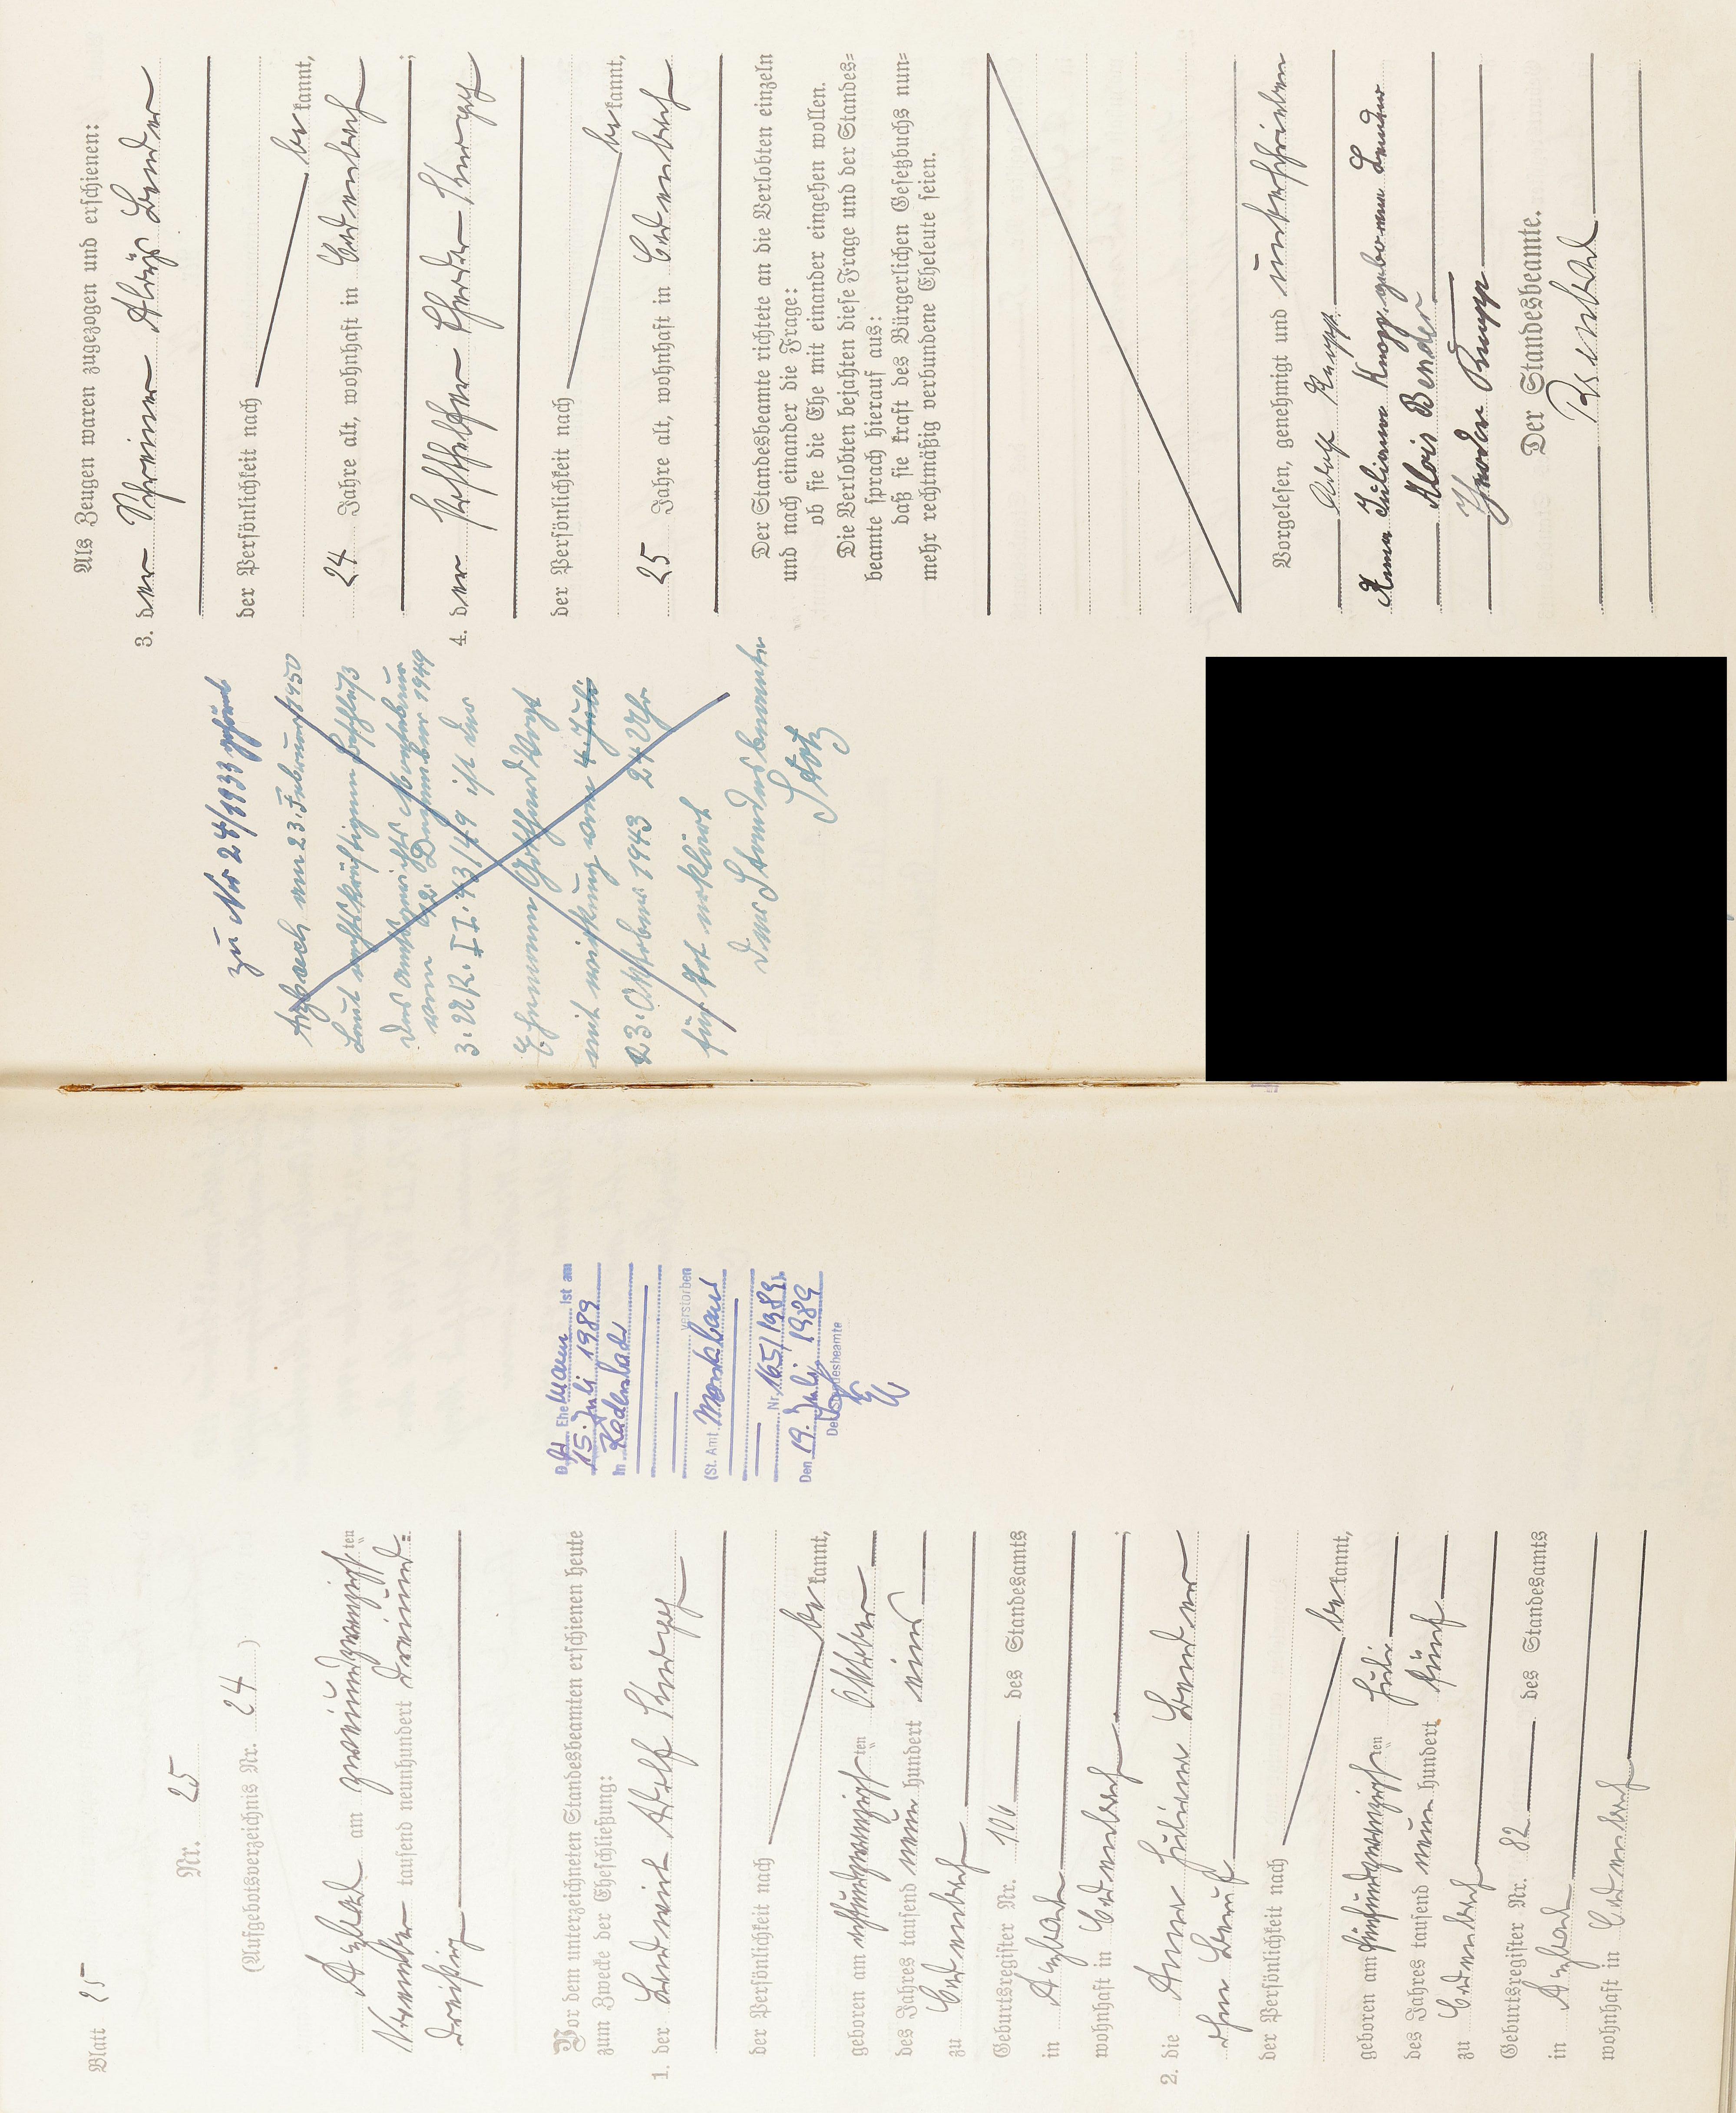 Blatt 25
Nr. 25
(Aufgebotsverzeichnis Nr. 24)
Arzbach am zweiundzwanzigsten
November tausend neunhundert dreiund=
dreißig
Vor dem unterzeichneten Standesbeamten erschienen heute
zum Zwecke der Eheschließung:
1. der Adolf Knopp
der Persönlichkeit nach
be kannt,
geboren am achtundzwanzigsten Oktober
des Jahres tausend neun hundert eins
zu Cadenbach
Geburtsregister Nr. 106 des Standesamts
in Arzbach
wohnhaft in Cadenbach
2. die Anna Juliana Bender
ohne Beruf
der Persönlichkeit nach
be kannt,
geboren am fünfundzwanzigsten Juli
des Jahres tausend neun hundert fünf
zu Cadenbach
Geburtsregister Nr. 82 des Standesamts
in Arzbach
wohnhaft in Cadenbach
Der Ehemann ist am
15. Juli 1989
in Kadenbach
verstorben
(St. Amt Montabaur
Nr. 165/1989).
Den 19. Juli 1989
Der Standesbeamte
Als Zeugen waren zugezogen und erschienen:
3. der Schreiner Alois Bender
der Persönlichkeit nach
be kannt,
24 Jahre alt, wohnhaft in Cadenbach
4. der Theodor Knopp
der Persönlichkeit nach
be kannt,
25 Jahre alt, wohnhaft in Cadenbach
Der Standesbeamte richtete an die Verlobten einzeln
und nach einander die Frage:
ob sie die Ehe mit einander eingehen wollen.
Die Verlobten bejahten diese Frage und der Standes=
beamte sprach hierauf aus:
daß sie kraft des Bürgerlichen Gesetzbuchs nun=
mehr rechtmäßig verbundene Eheleute seien.
Vorgelesen, genehmigt und unterschrieben
Adolf Knopp
Anna Juliana Knopp geborene Bender
Alois Bender
Theodor Knopp
Der Standesbeamte.
zu Nr 24/1933 gehörend
Arzbach am 23. Februar 1950
Laut rechtskräftigem Beschluß
des Amtsgerichts Montabaur
vom 12. Dezember 1949
3. UR. II. 43/49 ist der
Ehemann
mit wirkung vom 4. Juli
23. Oktober 1943 24 Uhr
für tot erklärt
Der Standesbeamte
Stotz